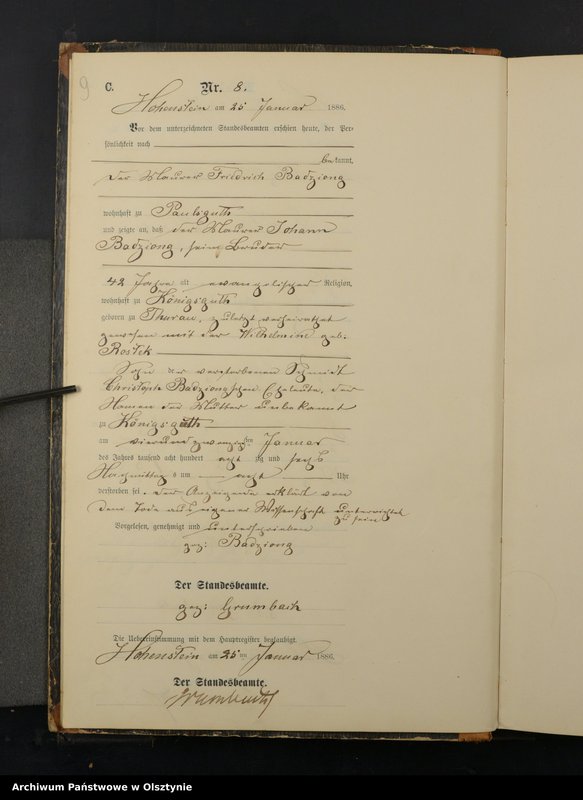 9
C.
Nr. 8.
Hohenstein am 25 Januar 1886.
Vor dem unterzeichneten Standesbeamten erschien heute, der Per-
sönlichkeit nach
bekannt,
der Maurer Friedrich Badziong
wohnhaft zu Paulsguth
und zeigte an, daß der Maurer Johann
Badziong, sein Bruder
42 Jahre alt evangelischer Religion,
wohnhaft zu Königsguth
geboren zu Thurau, zuletzt verheirathet
gewesen mit der Wilhelmine geb:
Rostek
Sohn der verstorbenen Schmidt
Christoph Badziongschen Eheleute, der
Namen der Mutter unbekannt
zu Königsguth
am vierundzwanzigsten Januar
des Jahres tausend acht hundert achtzig und sechs
Nachmittags um acht Uhr
verstorben sei. Der Anzeigende erklärt von
dem Tode aus eigener Wissenschaft unterrichtet
zu sein
Vorgelesen, genehmigt und unterschrieben
gez: Badziong
Der Standesbeamte.
gez: Grumbach
Die Uebereinstimmung mit dem Hauptregister beglaubigt.
Hohenstein am 25ten Januar 1886.
Der Standesbeamte.
Grumbach
Archiwum Państwowe w Olsztynie